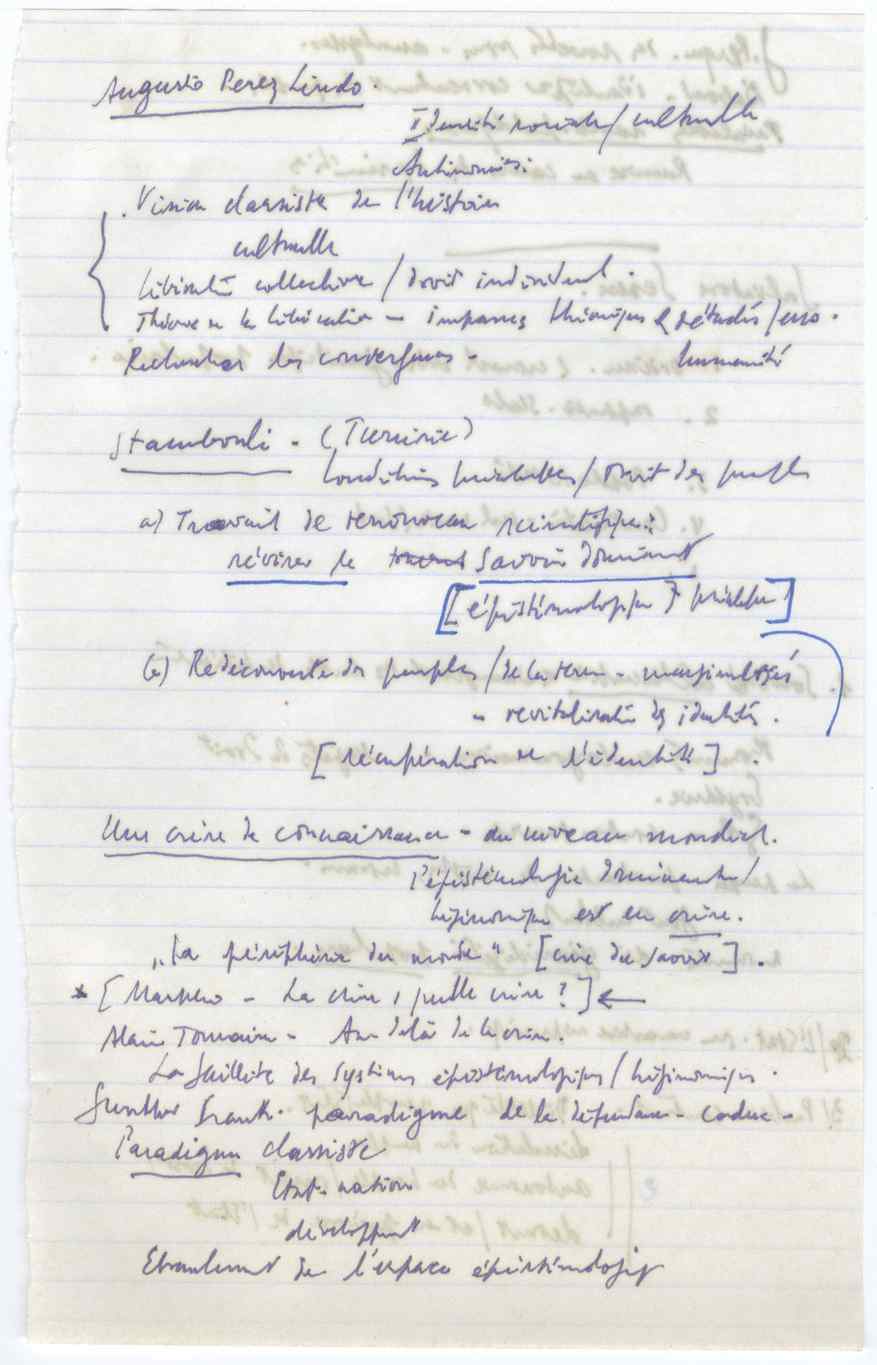 Augusto Perez Lindo.
Identité sociale / culturelle
Antinomies:
. Vision classiste de l'histoire
culturelle
Libérté collective / droit individuel.
Théorie de la libération - impasses théoriques /
humanité
Rechercher des convergences -
Stambouli - (Tunisie)
Conditions préalables / Droit des peuples
a) Travail de renouveau scientifique:
réviser le savoir dominant
[épistémologique préalable]
b) Redécouverte des peuples / de la terre - marginalisés
- revitalisation des identités.
[récupération de l'identité].
Une crise de connaissance - au niveau mondial.
l'épistémologie dominante /
hégémonique est en crise.
"La périphérie du monde" [crise du savoir].
* [ - La crise, quelle crise ?] ←
Alain Touraine - Au-delà de la crise.
La faillite des systèmes épistémologiques / hégémoniques.
Gunther Frank. paradigme de la dépendance - caduc -
Paradigme classiste
Etat-nation
développement
Ebranlement de l'espace épistémologique